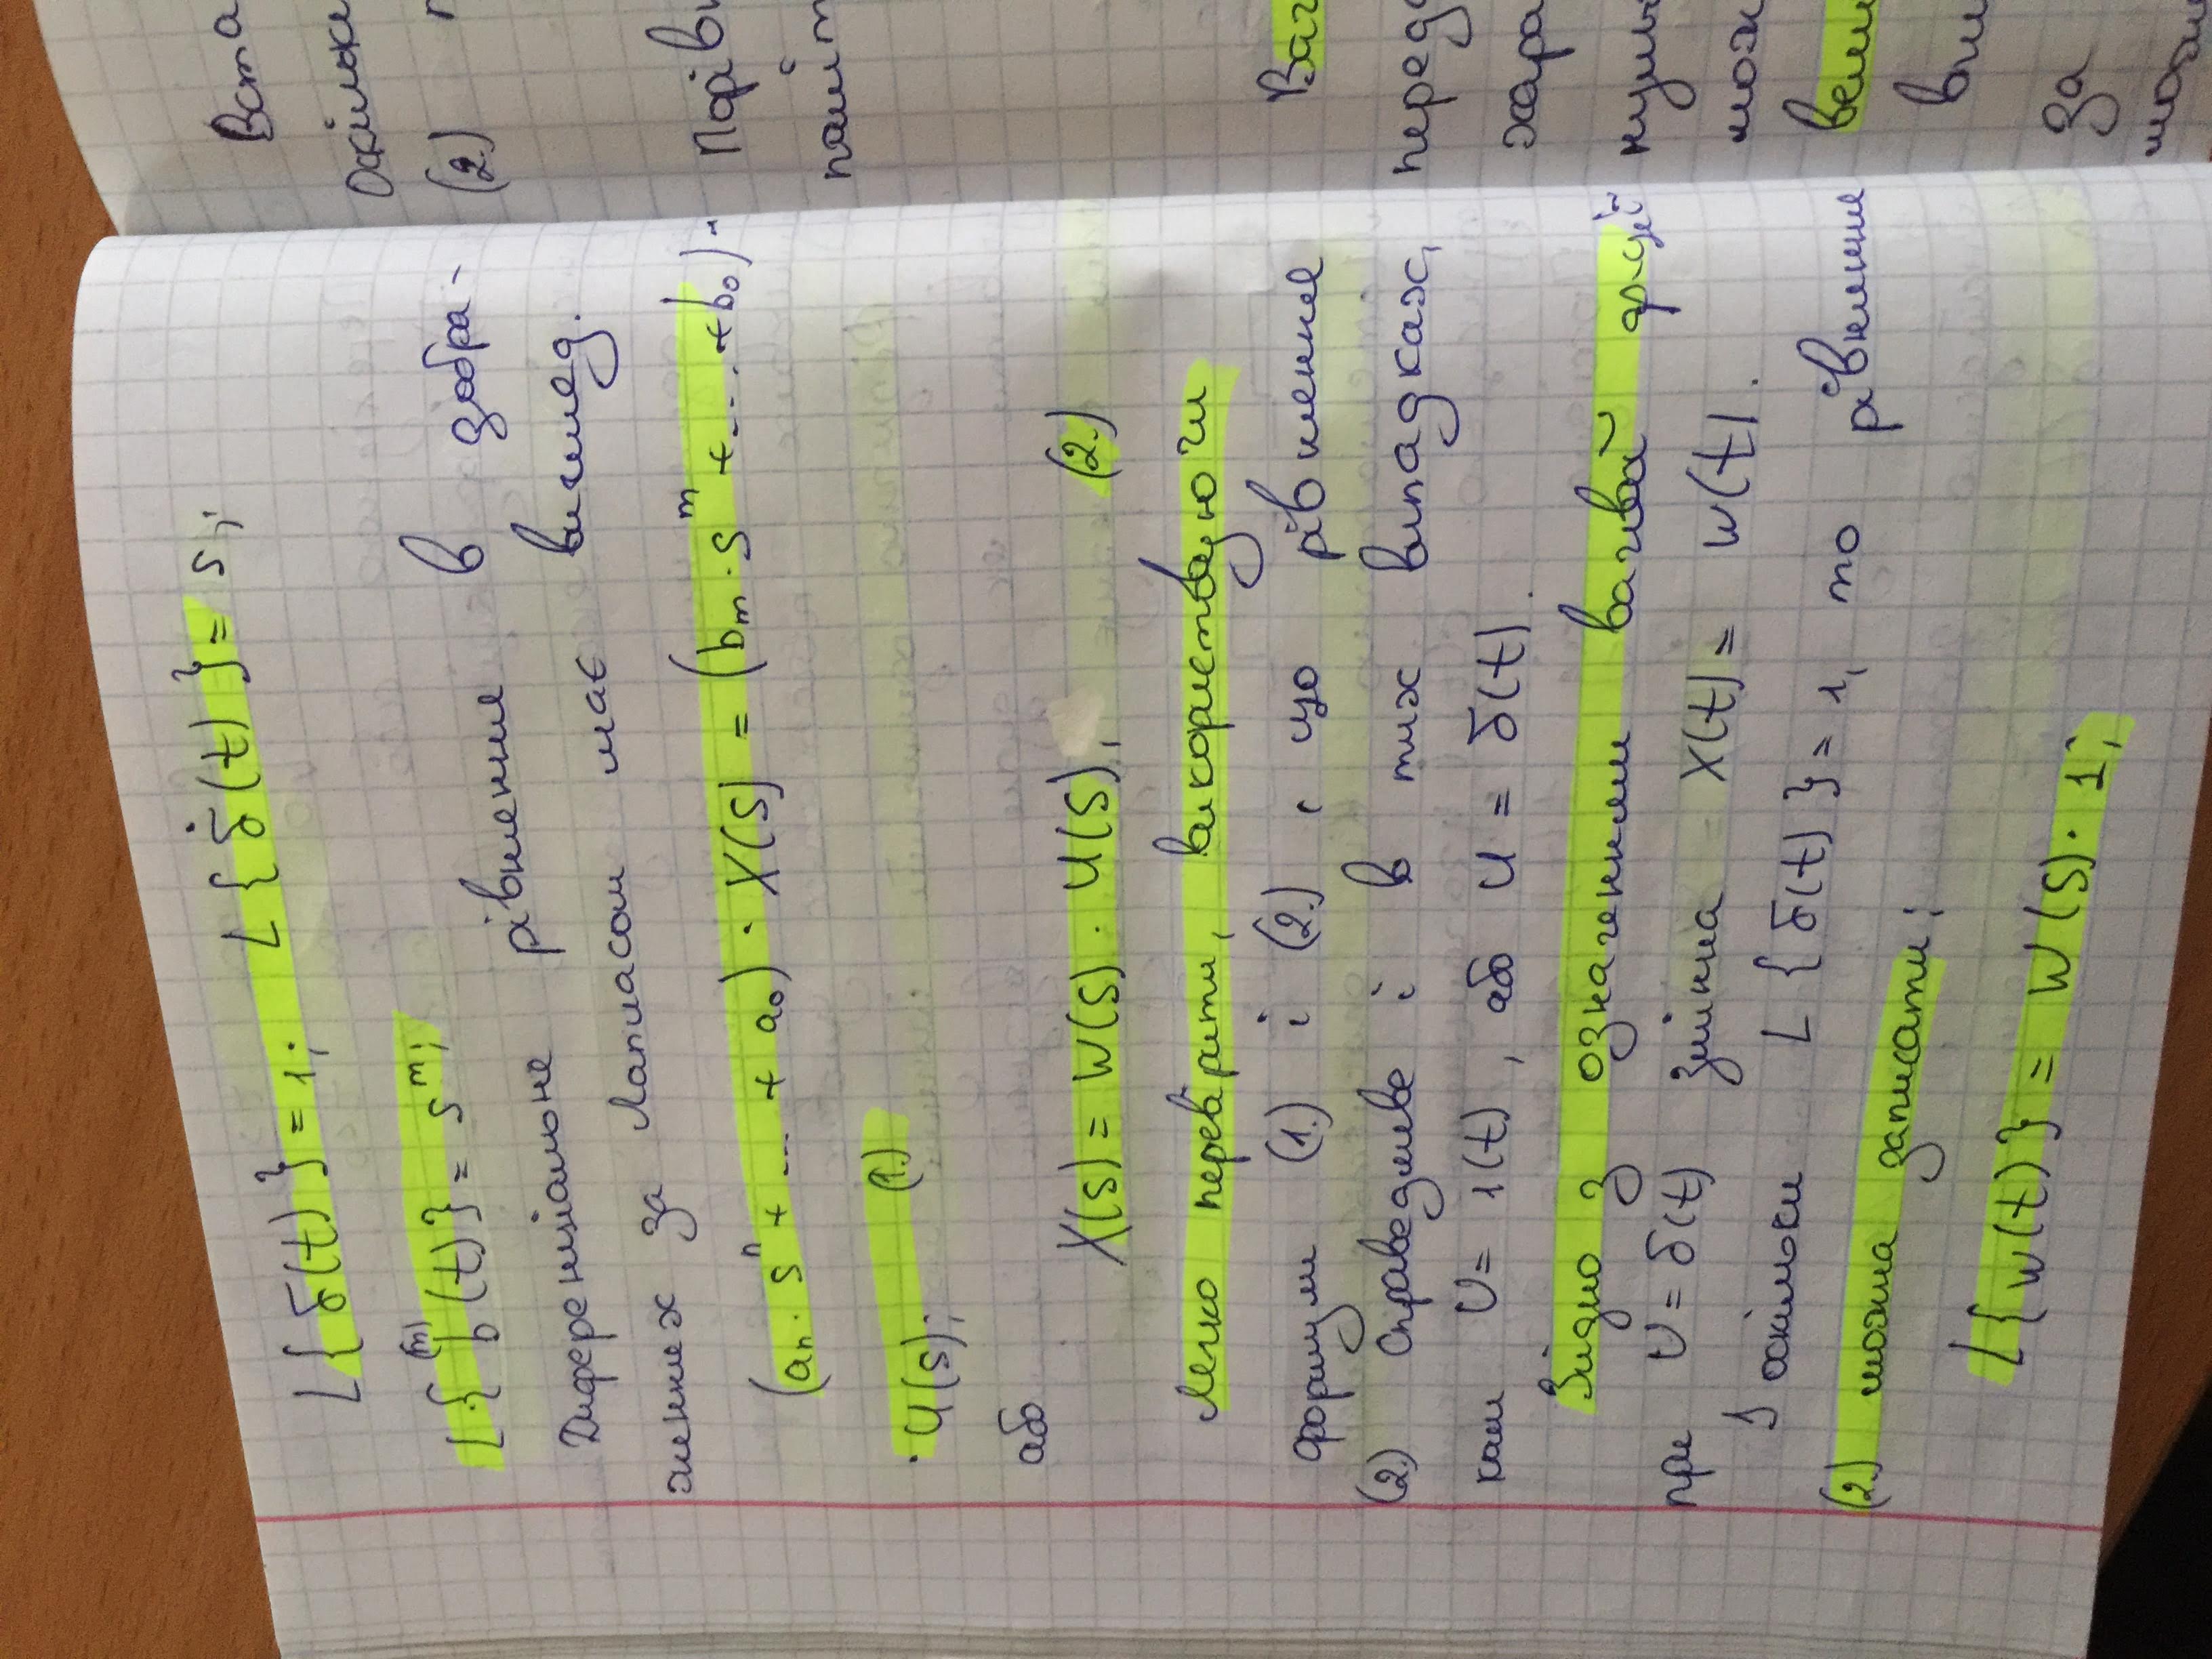 L{δ(t)} = 1; L{δ̇(t)} = s;
L{b⁽ᵐ⁾(t)} = sᵐ;
Диференціальне рівняння в зобра-
женнях за Лапласом має вигляд.
(aₙ · sⁿ + ... + a₀) · X(s) = (bₘ · sᵐ + .... + b₀) ·
· U(s); (1.)
або
X(s) = W(s) · U(s), (2.)
Легко перевірити, використовуючи
формули (1.) і (2.), що рівняння
(2.) справедливе і в тих випадках,
коли U = 1(t), або U = δ(t).
Згідно з означенням вагової ф-цієї
при U = δ(t) змінна X(t) = w(t).
І оскільки L{δ(t)} = 1, то рівняння
(2.) можна записати:
L{w(t)} = W(s) · 1;
Вста
Оскільки
(2.) п
Порівн
поміт
Ваг
переда
хара
нуль
мож
вели
вли
за